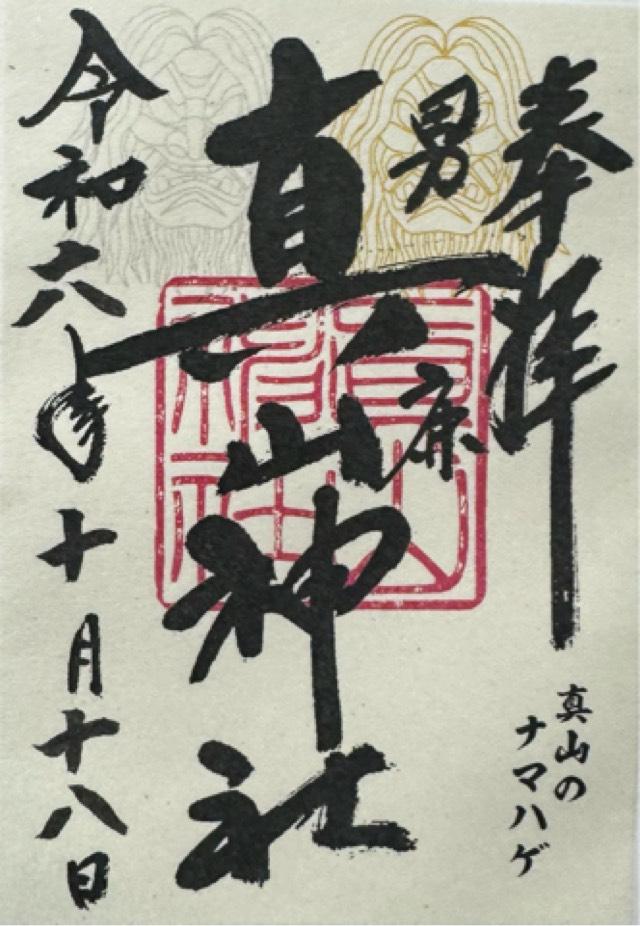 奉拝
真山の
ナマハゲ
男鹿
真山神社
令和六年十月十八日